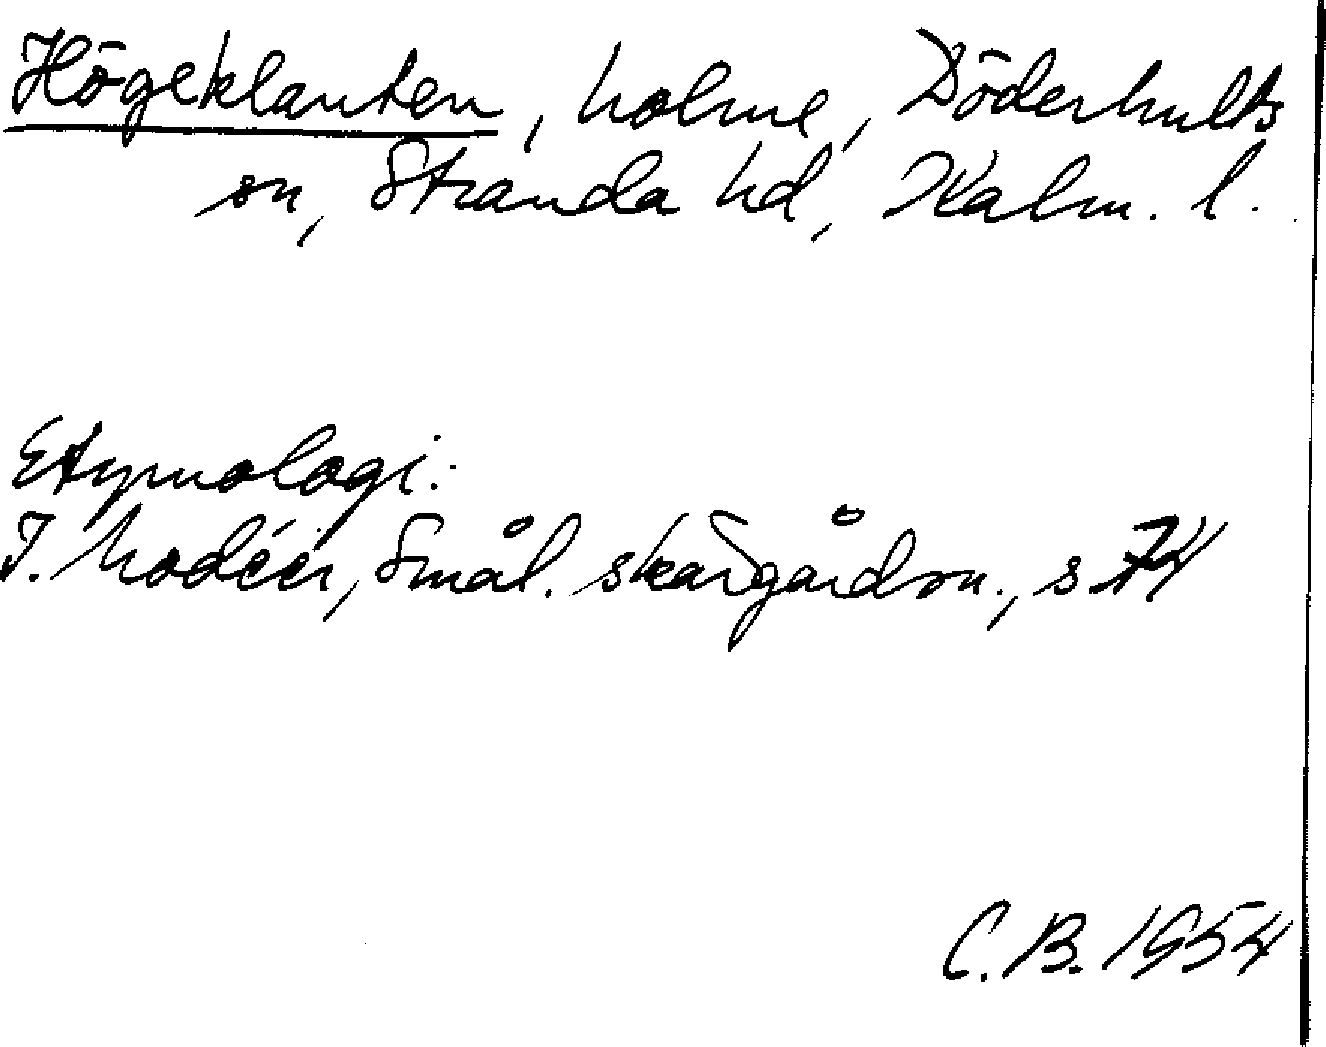 Högeklauten, holme, Döderhults
sn, Stranda hd, Kalm. l.
Etymologi:
I. Modéer, Smål. skärgårdsn., s. 74
C.B. 1954